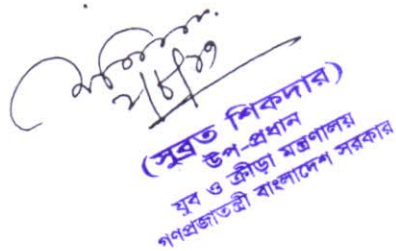 (সুব্রত শিকদার)
উপ-প্রধান
যুব ও ক্রীড়া মন্ত্রণালয়
গণপ্রজাতন্ত্রী বাংলাদেশ সরকার